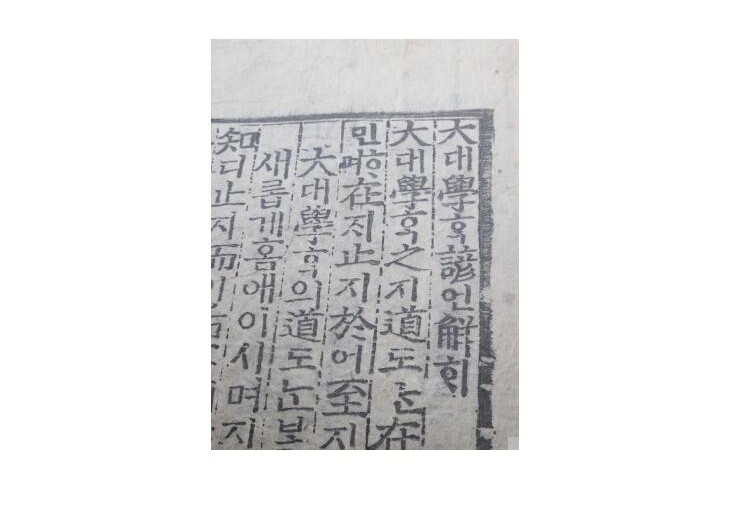 大대學ᄒᆞᆨ諺언解ᄒᆡ
大대學ᄒᆞᆨ之지道도ᄂᆞᆫ在
민ᄒᆞ며在ᄌᆡ止지於어至지
大대學ᄒᆞᆨ의道도ᄂᆞᆫ
새롭게홈애이시며지
知디止지而이